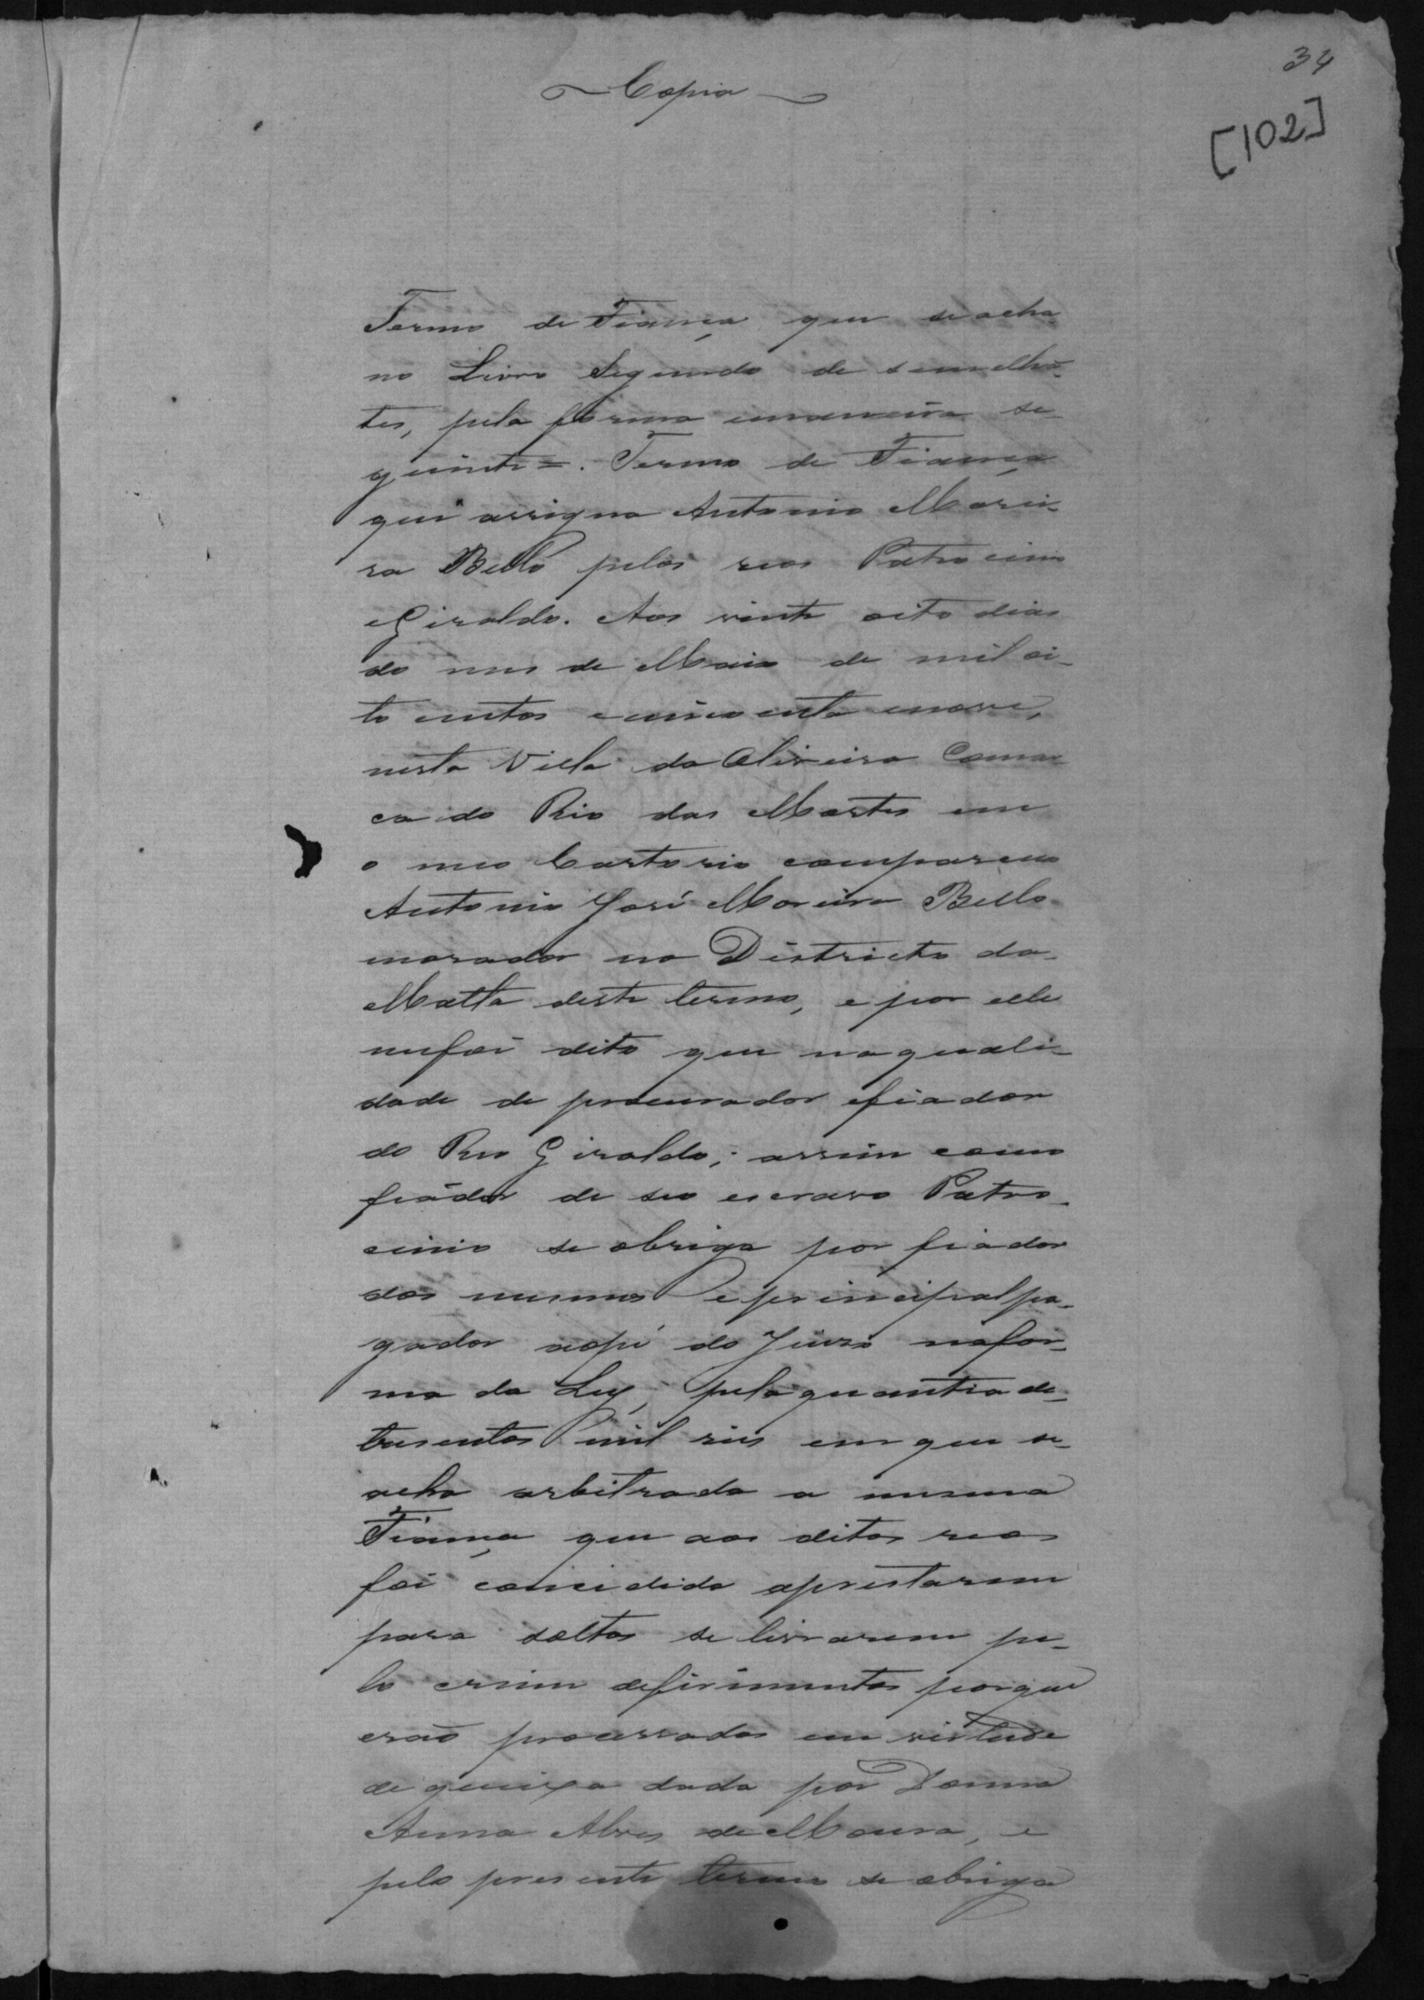 34
Copia
[102]
Termo de Fiança que se acha
no Livro Segundo de semelhan-
tes, pela forma emaneira se-
guinte =. Termo de Fiança
que assigna Antonio Morei-
ra Bello pelos reos Patrocinio
e Giraldo. Aos vinte oito dias
do mes de Maio de mil oi-
to centos cincoenta enove,
nesta Villa da Oliveira Comar
ca do Rio das Mortes em
o meo Cartorio compareceo
Antonio José Moreira Bello
morador no Districto da
Matta deste termo, e por elle
mefoi dito que naquali-
dade de procurador efiador
do Reo Giraldo, assim como
fiador de seo escravo Patro-
cinio se obriga por fiador
dos mesmos eprincipal pa-
gador aopé do Juizo nafor-
ma da Ley, pelaquantia de
tresentos mil reis em que se
acha arbitrada a mesma
Fiança que aos ditos reos
foi concidida aprestarem
para soltos se livrarem pe-
lo crime deferimentos porque
erão processados em virtude
de queixa dada por Donna
Anna Alves de Moura, e
pelo presente termo se obriga